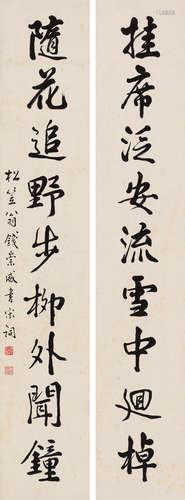 挂席泛安流雪中迴棹
隨花追野步柳外聞鐘
松笠翁錢崇威書宋詞